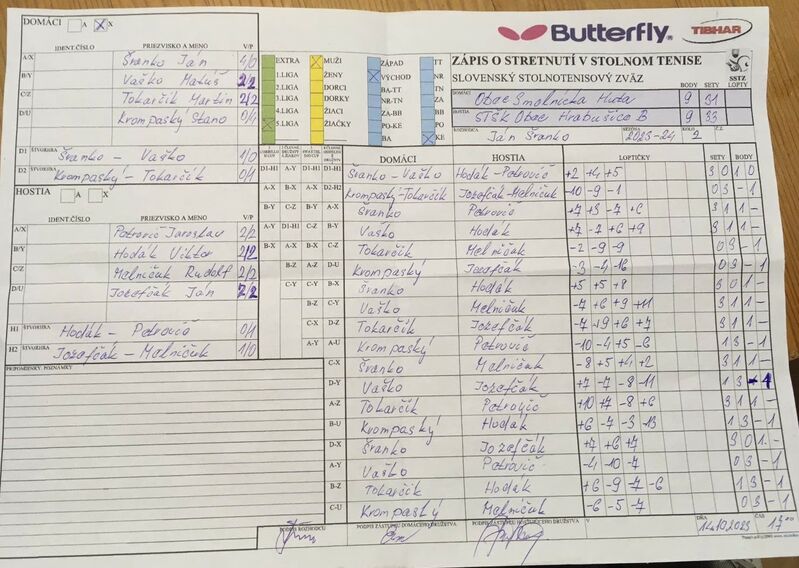 DOMÁCI A X
IDENT.ČÍSLO PRIEZVISKO A MENO V/P
A/X Švanko Ján 4/0
B/Y Vaško Matúš 2/2
C/Z Tokarčík Martin 2/2
D/U Krompaský Stano 0/4
D1 ŠTVORHRA Švanko - Vaško 1/0
D2 ŠTVORHRA Krompaský - Tokarčík 0/1
HOSTIA A X
IDENT.ČÍSLO PRIEZVISKO A MENO V/P
A/X Petrovič Jaroslav 2/2
B/Y Hodák Viktor 2/2
C/Z Melničuk Rudolf 2/2
D/U Jozefčák Ján 2/2
H1 ŠTVORHRA Hodák - Petrovič 0/1
H2 ŠTVORHRA Jozefčák - Melničuk 1/0
PRIPOMIENKY, POZNÁMKY
EXTRA
1.LIGA
2.LIGA
3.LIGA
4.LIGA
5.LIGA
MUŽI
ŽENY
DORCI
DORKY
ŽIACI
ŽIAČKY
ZÁPAD
VÝCHOD
BA-TT
NR-TN
ZA-BB
PO-KE
TT
NR
TN
ZA
BB
PO
BA
KE
Butterfly
TIBHAR
ZÁPIS O STRETNUTÍ V STOLNOM TENISE
SLOVENSKÝ STOLNOTENISOVÝ ZVÄZ
SSTZ
BODY SETY LOPTY
DOMÁCI Obec Smolnícka Huta 9 31
HOSTIA STŠK Obec Hrabušice B 9 33
ROZHODCA Ján Švanko SEZÓNA 2023-24 KOLO 2 Č.Z.
DOMÁCI HOSTIA LOPTIČKY SETY BODY
D1-H1 Švanko - Vaško Hodák - Petrovič +2 +4 +5 3 0 1 0
D2-H2 Krompaský-Tokarčík Jozefčák-Melničuk -10 -9 -1
A-X Švanko Petrovič +7 +3 -7 +6 3 1 1 -
B-Y Vaško Hodák +7 -7 +6 +9 3 1 1 -
C-Z Tokarčík Melničuk -2 -9 -9 0 3 - 1
D-U Krompaský Jozefčák -3 -4 -16 0 3 - 1
A-Y Švanko Hodák +5 +5 +8 3 0 1 -
B-Z Vaško Melničuk -7 +6 +9 +11 3 1 1 -
C-U Tokarčík Jozefčák -7 +9 +6 +7 3 1 1 -
Krompaský Petrovič -10 -4 +5 -6 1 3 - 1
C-X Švanko Melničuk -8 +5 +4 +2 3 1 1 -
D-Y Vaško Jozefčák +7 -7 -8 -11 1 3 - 1
A-Z Tokarčík Petrovič +10 +7 -8 +6 3 1 1 -
B-U Krompaský Hodák +6 -7 -3 -13 1 3 - 1
D-X Švanko Jozefčák +7 +6 +7 3 0 1 -
A-Y Vaško Petrovič -4 -10 -7 0 3 - 1
B-Z Tokarčík Hodák +6 -9 -7 -6 1 3 - 1
C-U Krompaský Melničuk -6 -5 -7 0 3 - 1
PODPIS ROZHODCU
PODPIS ZÁSTUPCU DOMÁCEHO DRUŽSTVA
PODPIS ZÁSTUPCU HOSŤUJÚCEHO DRUŽSTVA
V
DŇA 14.10.2023
ČAS 17 00